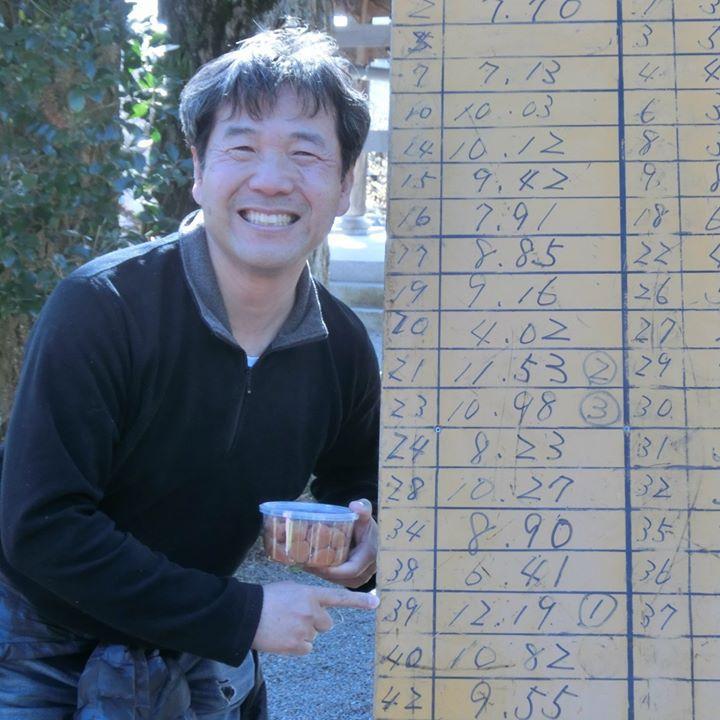 2 7.70 1
3 3
7 7.13 4 4
10 10.03 6
14 10.12 8
15 9.42 9
16 7.91 18
17 8.85 22
19 9.16 26
20 4.02 27
21 11.53 ② 29
23 10.98 ③ 30
24 8.23 31
28 10.27 32
34 8.90 35
38 6.41 36
39 12.19 ① 37
40 10.82
42 9.55